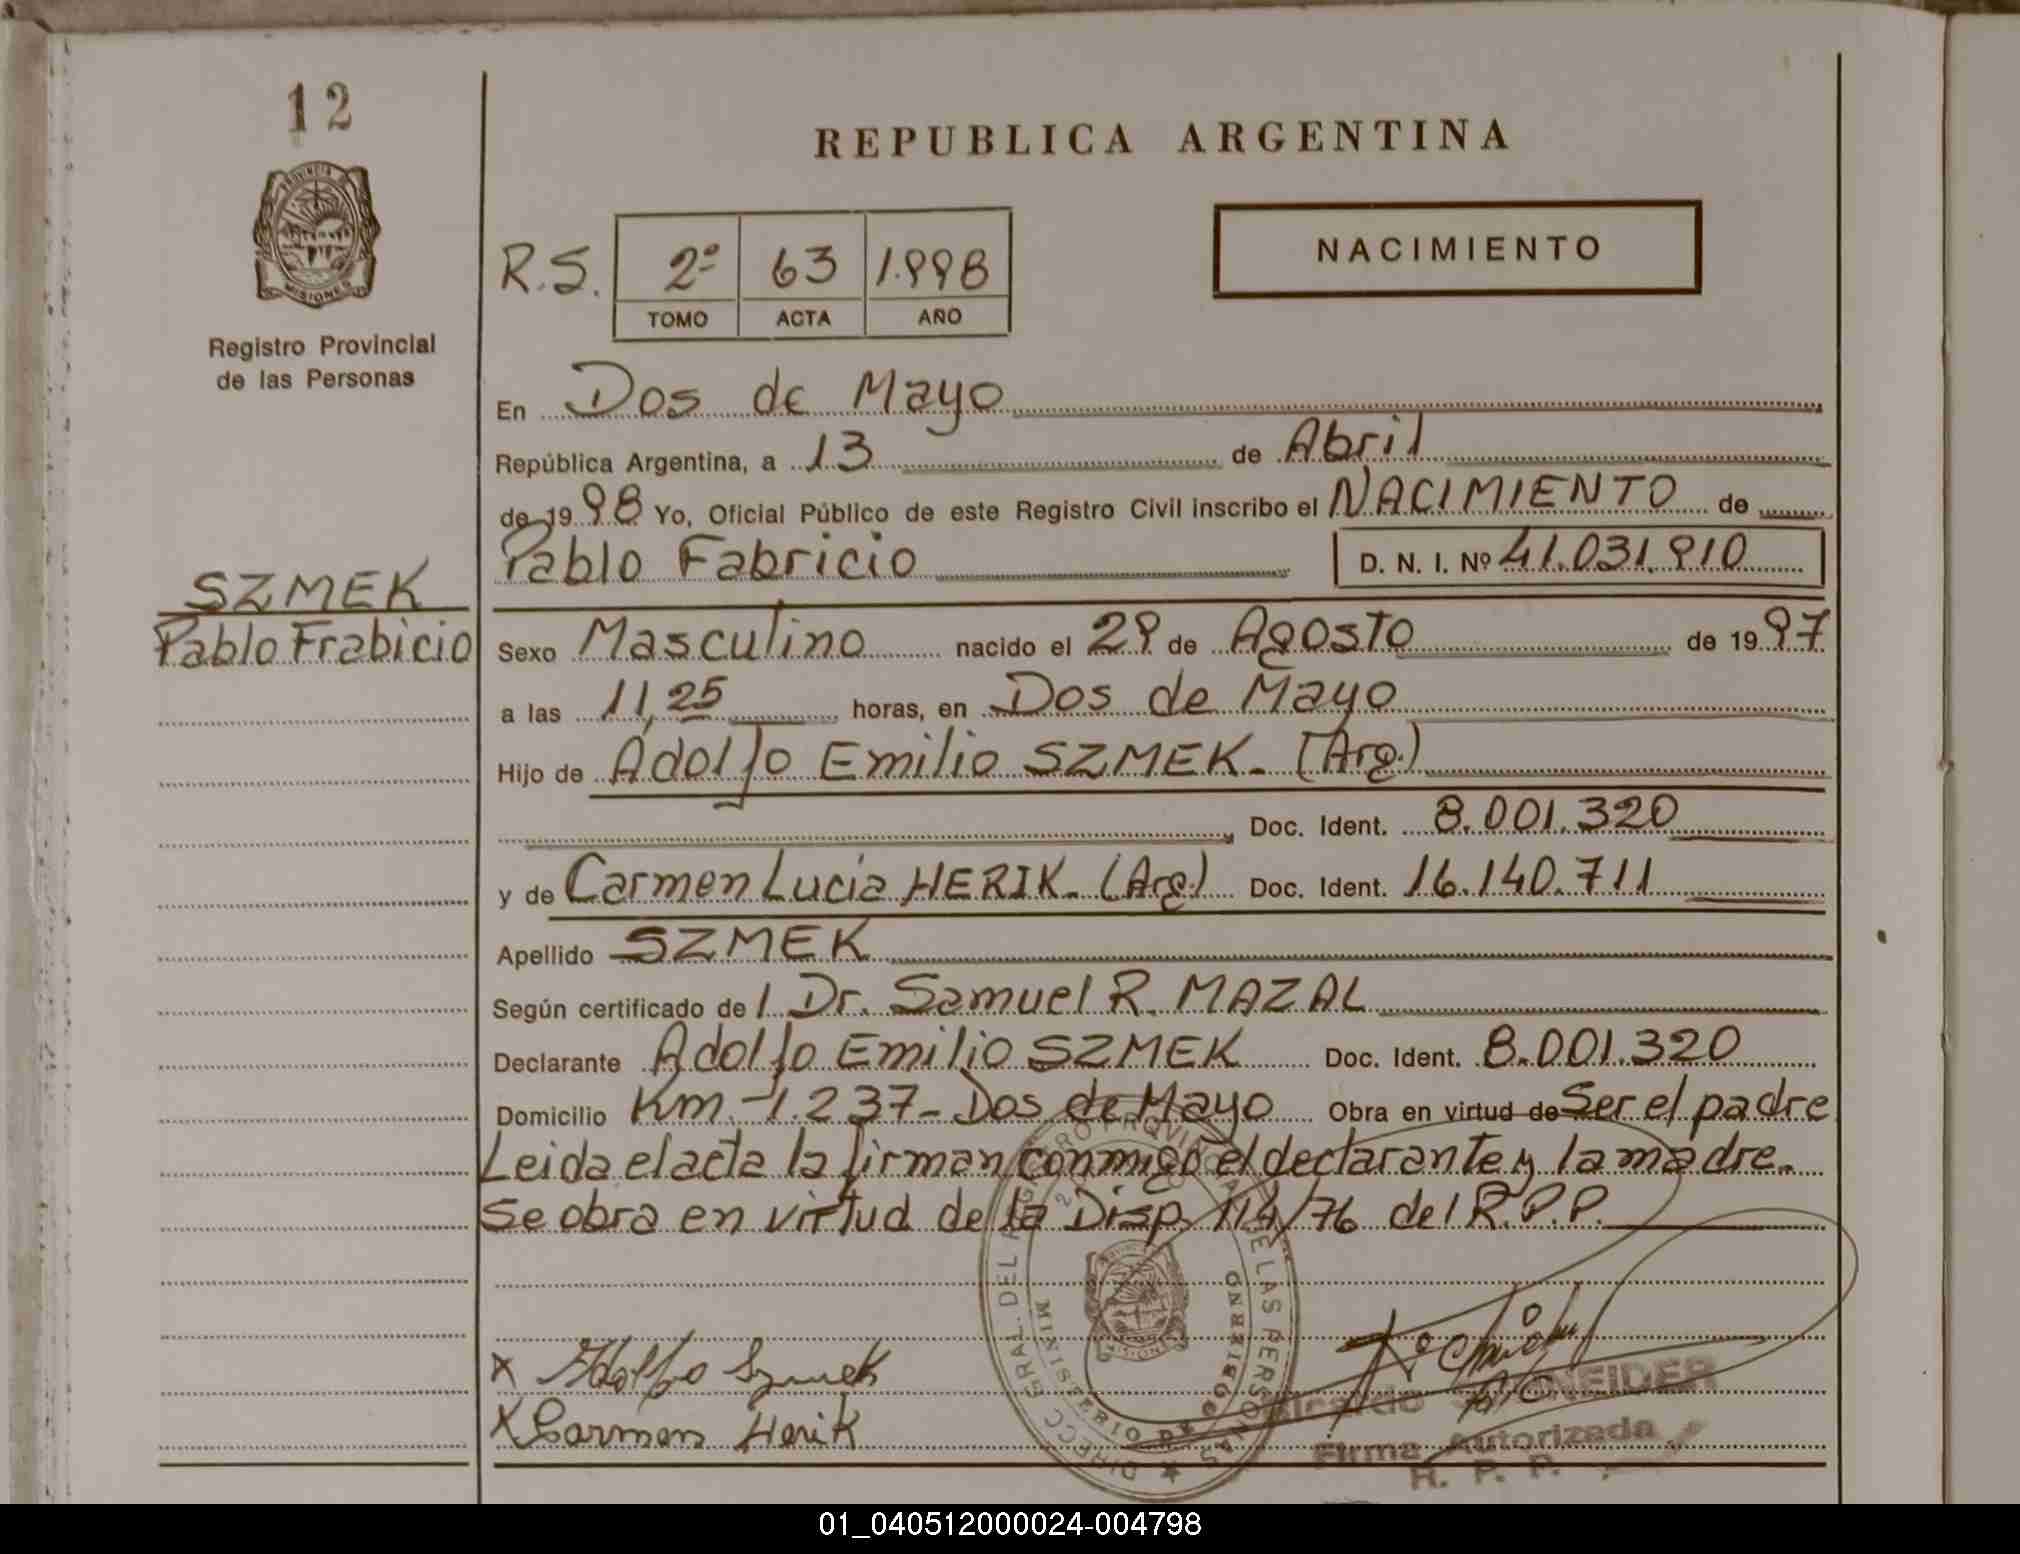 12
REPUBLICA ARGENTINA
PROVINCIA DE
MISIONES
Registro Provincial
de las Personas
NACIMIENTO
R.S. 2º 63 1.998
TOMO ACTA AÑO
En Dos de Mayo
República Argentina, a 13 de Abril
de 1998 Yo, Oficial Público de este Registro Civil inscribo el NACIMIENTO de
Pablo Fabricio D. N. I. Nº 41.031.910
SZMEK
Pablo Frabicio
Sexo Masculino nacido el 29 de Agosto de 1997
a las 11,25 horas, en Dos de Mayo
Hijo de Adolfo Emilio SZMEK.- (Arg.)
Doc. Ident. 8.001.320
y de Carmen Lucia HERIK.- (Arg.) Doc. Ident. 16.140.711
Apellido SZMEK
Según certificado de l Dr. Samuel R. MAZAL
Declarante Adolfo Emilio SZMEK Doc. Ident. 8.001.320
Domicilio Km.-1.237- Dos de Mayo Obra en virtud de Ser el padre
Leida el acta la firman conmigo el declarante y la madre.-
Se obra en virtud de la Disp. 114/76 del R.P.P.
DIRECC GRAL. DEL REGISTRO PROVINCIAL DE LAS PERSONAS
MINISTERIO DE GOBIERNO
MISIONES
X Adolfo Szmek
X Carmen Herik
Ricardo SCHNEIDER
Firma Autorizada
R. P. P.
01_040512000024-004798